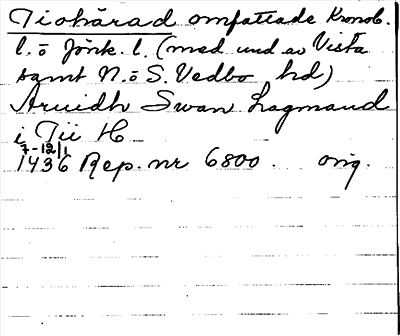 Tiohärad omfattade Kronob.
l. ō Jönk. l. (med und. av Vista
samt N. ō S. Vedbo hd)
Aruidh Swan Lagmand
i Tii H
7-12/1
1436 Rep. nr 6800. orig.